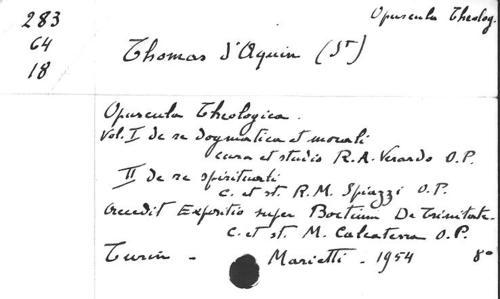 283
64
18
Opuscula Theolog.
Thomas d'Aquin (St)
Opuscula Theologica.
Vol. I De re dogmatica et morali
cura et studio R.A. Verardo O.P.
II De re spirituali
c. et st. R.M. Spiazzi O.P.
Accedit Expositio super Boetium De Trinitate.
c. et st. M. Calcaterra O.P.
Turin - Marietti - 1954 8°